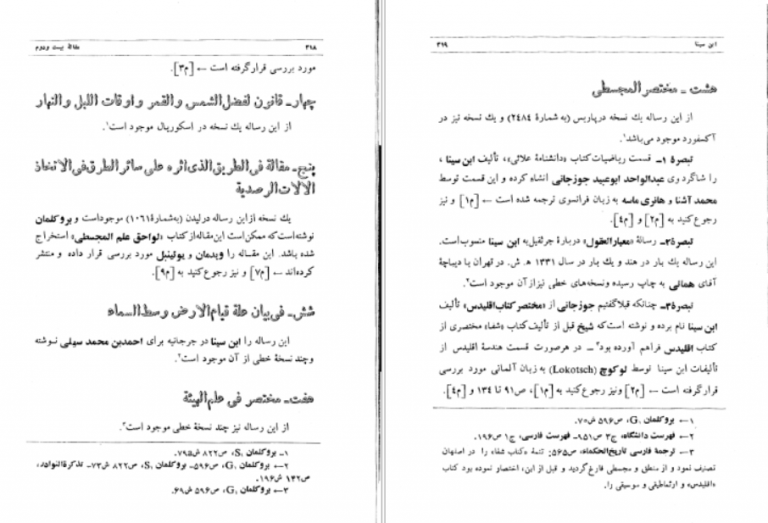 ۳۱۸
مقالهٔ بیست ودوم
مورد بررسی قرارگرفته است ← [م۳].
چهارـ قانون لفضل الشمس والقمر واوقات اللیل والنهار
از این رساله یك نسخه در اسکوریال موجود است¹.
پنجـ مقالة فی الطریق الذی اثره علی سائر الطرق فی الاتخاذ
الالات الرصدیة
یك نسخه ازاین رساله درلیدن (به‌شمارهٔ ۱۰۶۱) موجوداست و بروکلمان
نوشته‌است‌که ممکن‌است این‌مقاله‌ازکتاب «لواحق علم المجسطی» استخراج
شده باشد. این مقاله را ویدمان و یوئینبل مورد بررسی قرار داده و منتشر
کرده‌اند ← [م۷] و نیز رجوع‌کنید به [م۹].
ششـ فی بیان علة قیام الارض وسط السماء
این رساله را ابن سینا در جرجانیه برای احمدبن محمد سهلی نوشته
وچند نسخهٔ خطی از آن موجود است².
هفتـ مختصر فی علم الهیئة
از این رساله نیز چند نسخهٔ خطی موجود است³.
۱ـ بروکلمان S₁، ص۸۲۲ ش۷۹۵.
۲← بروکلمان G₁، ص۵۹۶ـ بروکلمان S₁، ص۸۲۲ ش۷۳ـ تذکرةالنوادر،
ص۱۴۲ ش۱۹۶.
۳← بروکلمان G₁، ص۵۹۶ ش۶۹.
ابن سینا
۳۱۹
هشت ـ مختصر المجسطی
از این رساله یك نسخه درپاریس (به شمارهٔ ۲۴۸۴) و یك نسخه نیز در
آکسفورد موجود می‌باشد¹.
تبصرهٔ ۱ـ قسمت ریاضیات کتاب «دانشنامهٔ علائی»، تألیف ابن سینا،
را شاگردوی عبدالواحد ابوعبید جوزجانی انشاء کرده و این قسمت توسط
محمد آشنا و هانری ماسه به زبان فرانسوی ترجمه شده است ← [م۱] و نیز
رجوع‌کنید به [م۲] و [م۴].
تبصرهٔ۲ـ رسالهٔ «معیارالعقول» دربارهٔ جرثقیل‌به ابن سینا منسوب‌است.
این رساله یك بار در هند و یك بار در سال ۱۳۳۱ ه. ش. در تهران با دیباچهٔ
آقای همائی به چاپ رسیده ونسخه‌های خطی نیزازآن موجود است².
تبصرهٔ۳ـ چنانکه قبلاگفتیم جوزجانی از «مختصرکتاب‌اقلیدس» تألیف
ابن سینا نام برده و نوشته است‌که شیخ قبل از تألیف‌کتاب «شفاء مختصری از
کتاب اقلیدس فراهم آورده بود³ ـ در هرصورت قسمت هندسهٔ اقلیدس از
تألیفات ابن سینا توسط لوکوچ (Lokotsch) به زبان آلمانی مورد بررسی
قرارگرفته است ← [م۲] ونیز رجوع‌کنید به [م۱]، ص۹۱ تا ۱۳۴ و [م۴].
۱← بروکلمان G₁، ص۵۹۶ ش۷۰.
۲← فهرست دانشگاه، ج۳ ص۹۵۱ـ فهرست فارسی، ج۱ ص۱۹۶.
۳← ترجمهٔ فارسی تاریخ‌الحکماء، ص۵۶۵: تتمهٔ «کتاب شفاء را در اصفهان
تصنیف نمود و از منطق و مجسطی فارغ‌گردید و قبل از این، اختصار نموده بود کتاب
«اقلیدس» و ارثماطیقی و موسیقی را.